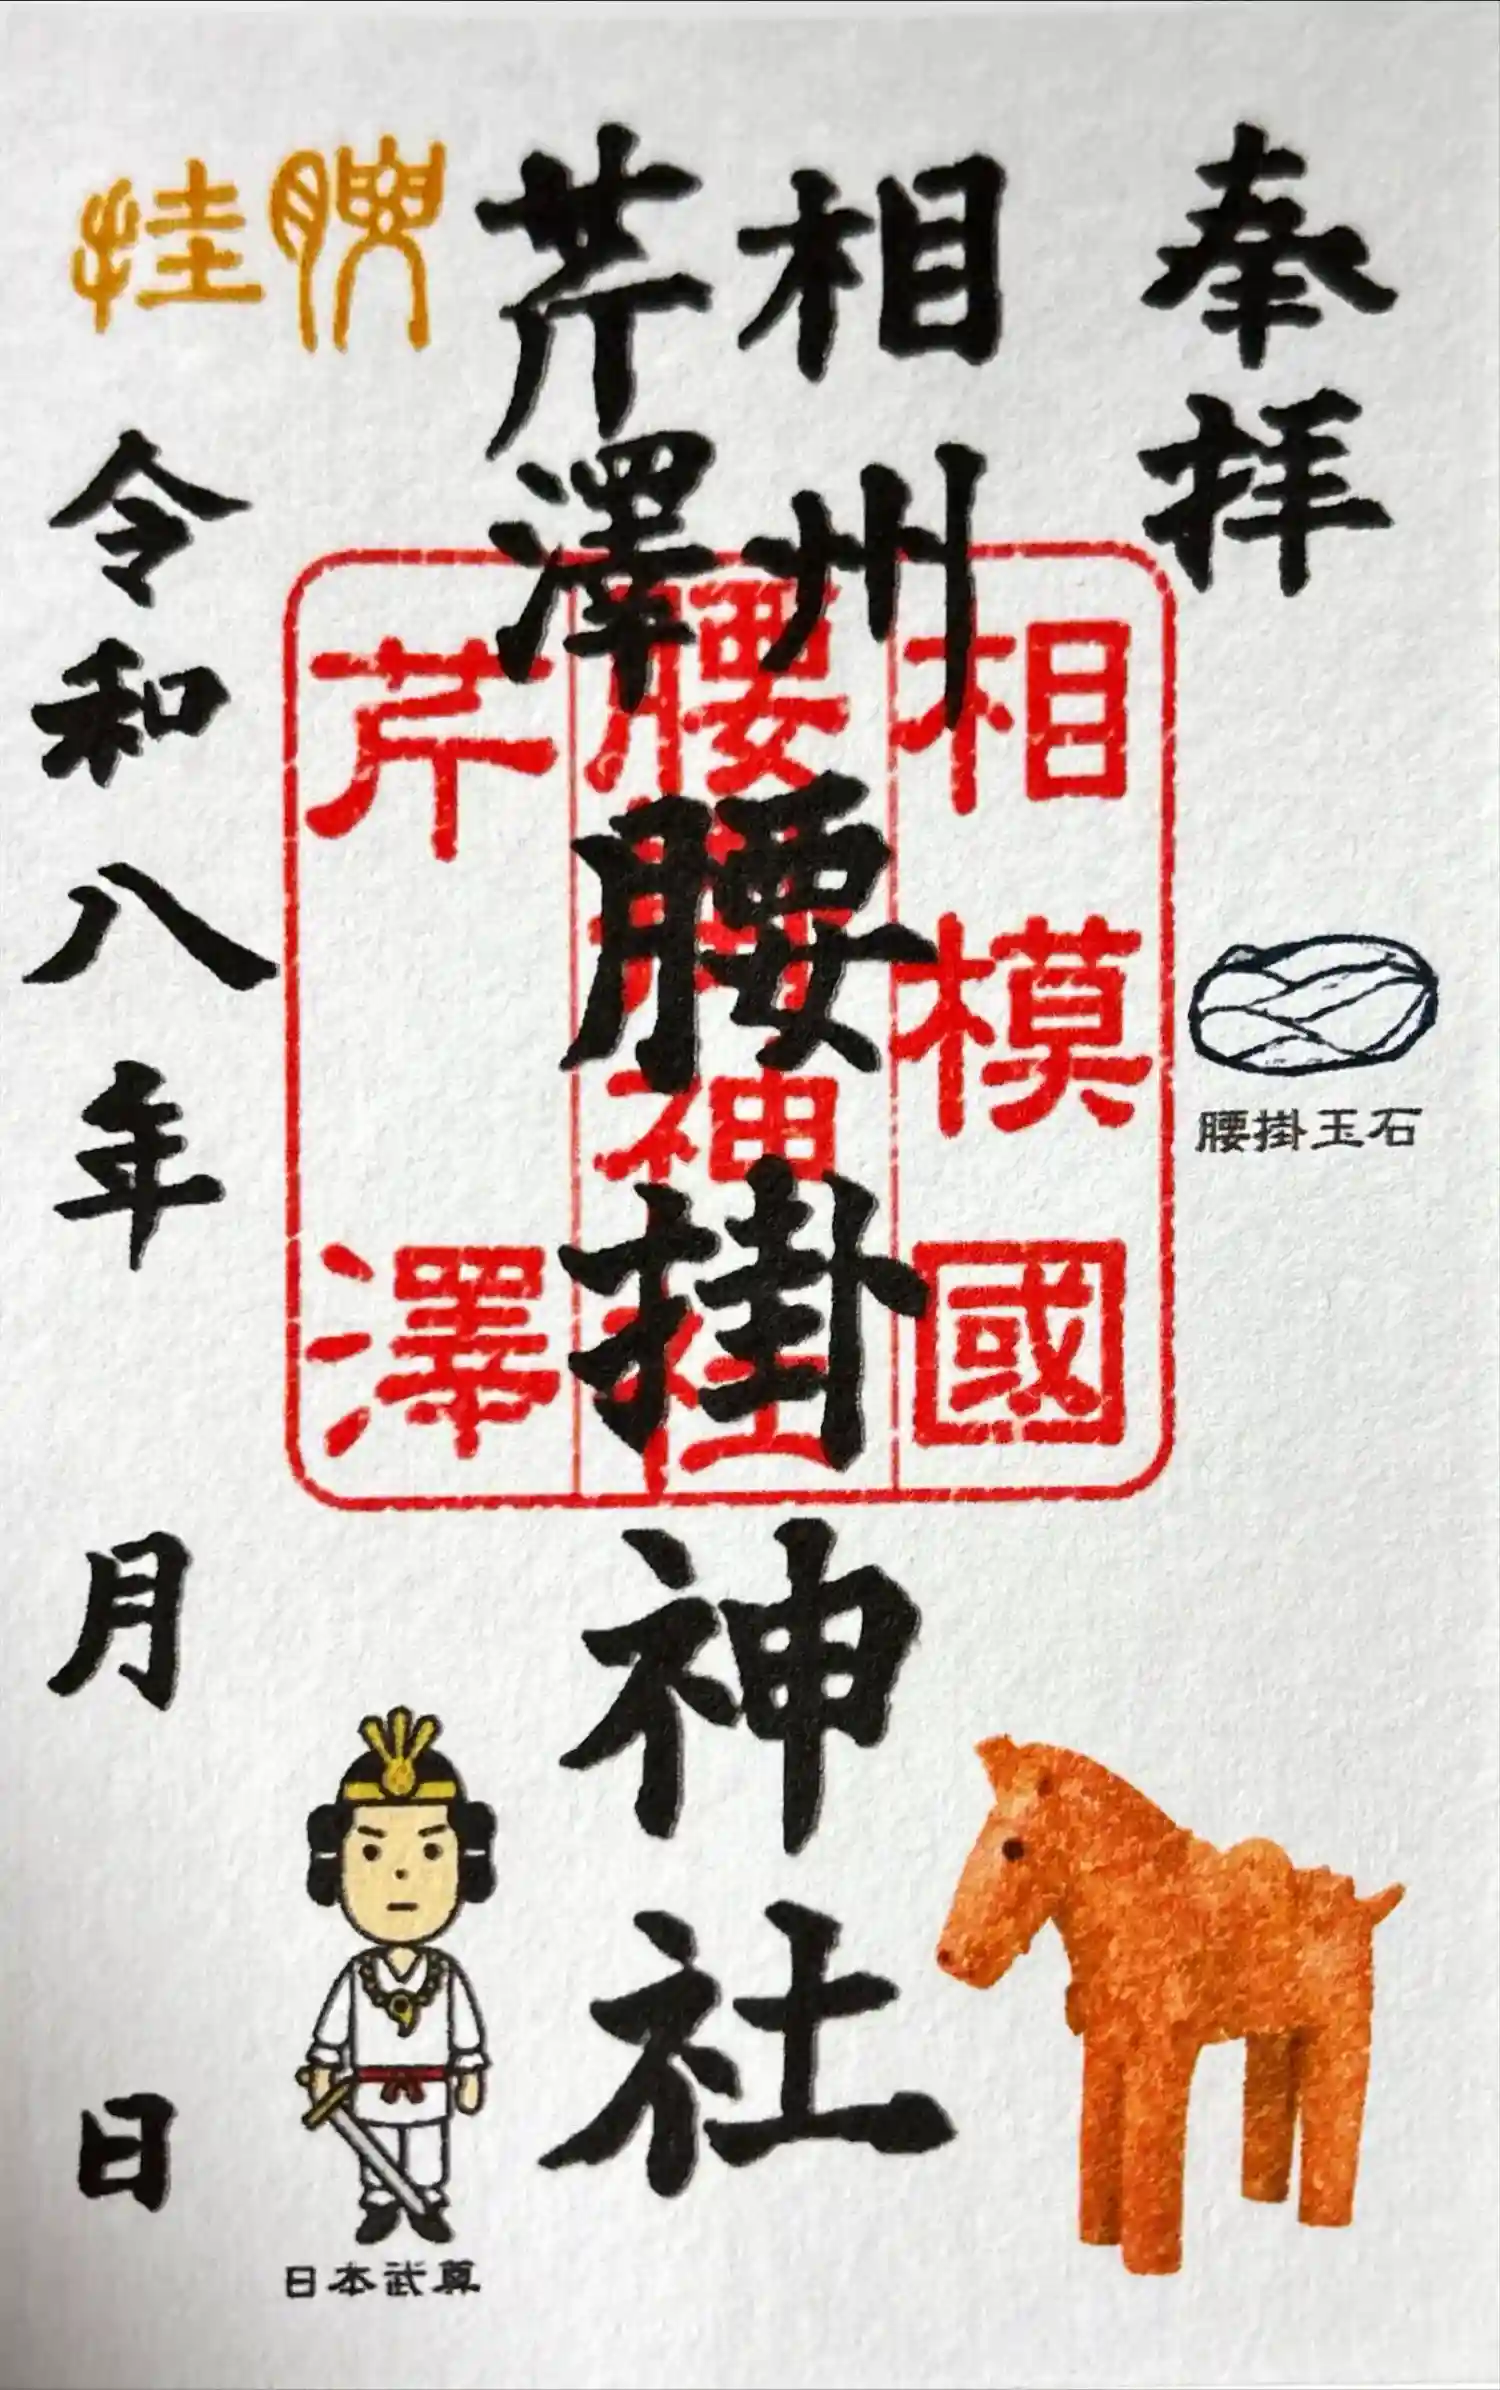 奉拝
相州
芹澤
腰掛神社
相模國
腰掛神社
芹澤
腰掛玉石
腰掛
令和八年 月 日
日本武尊